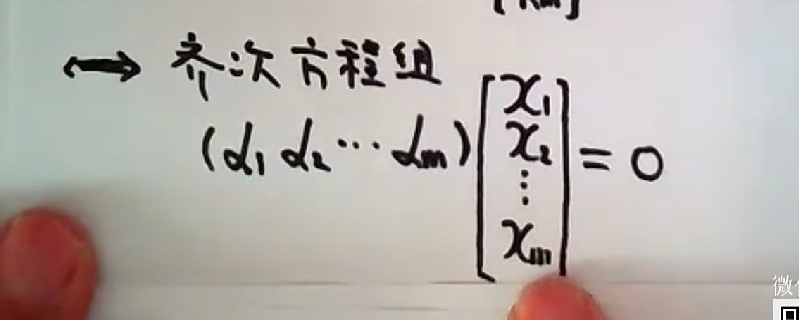 ⟷ 齐次方程组
(α₁ α₂ ⋯ αₘ) [x₁ x₂ ⋮ xₘ] = 0
微